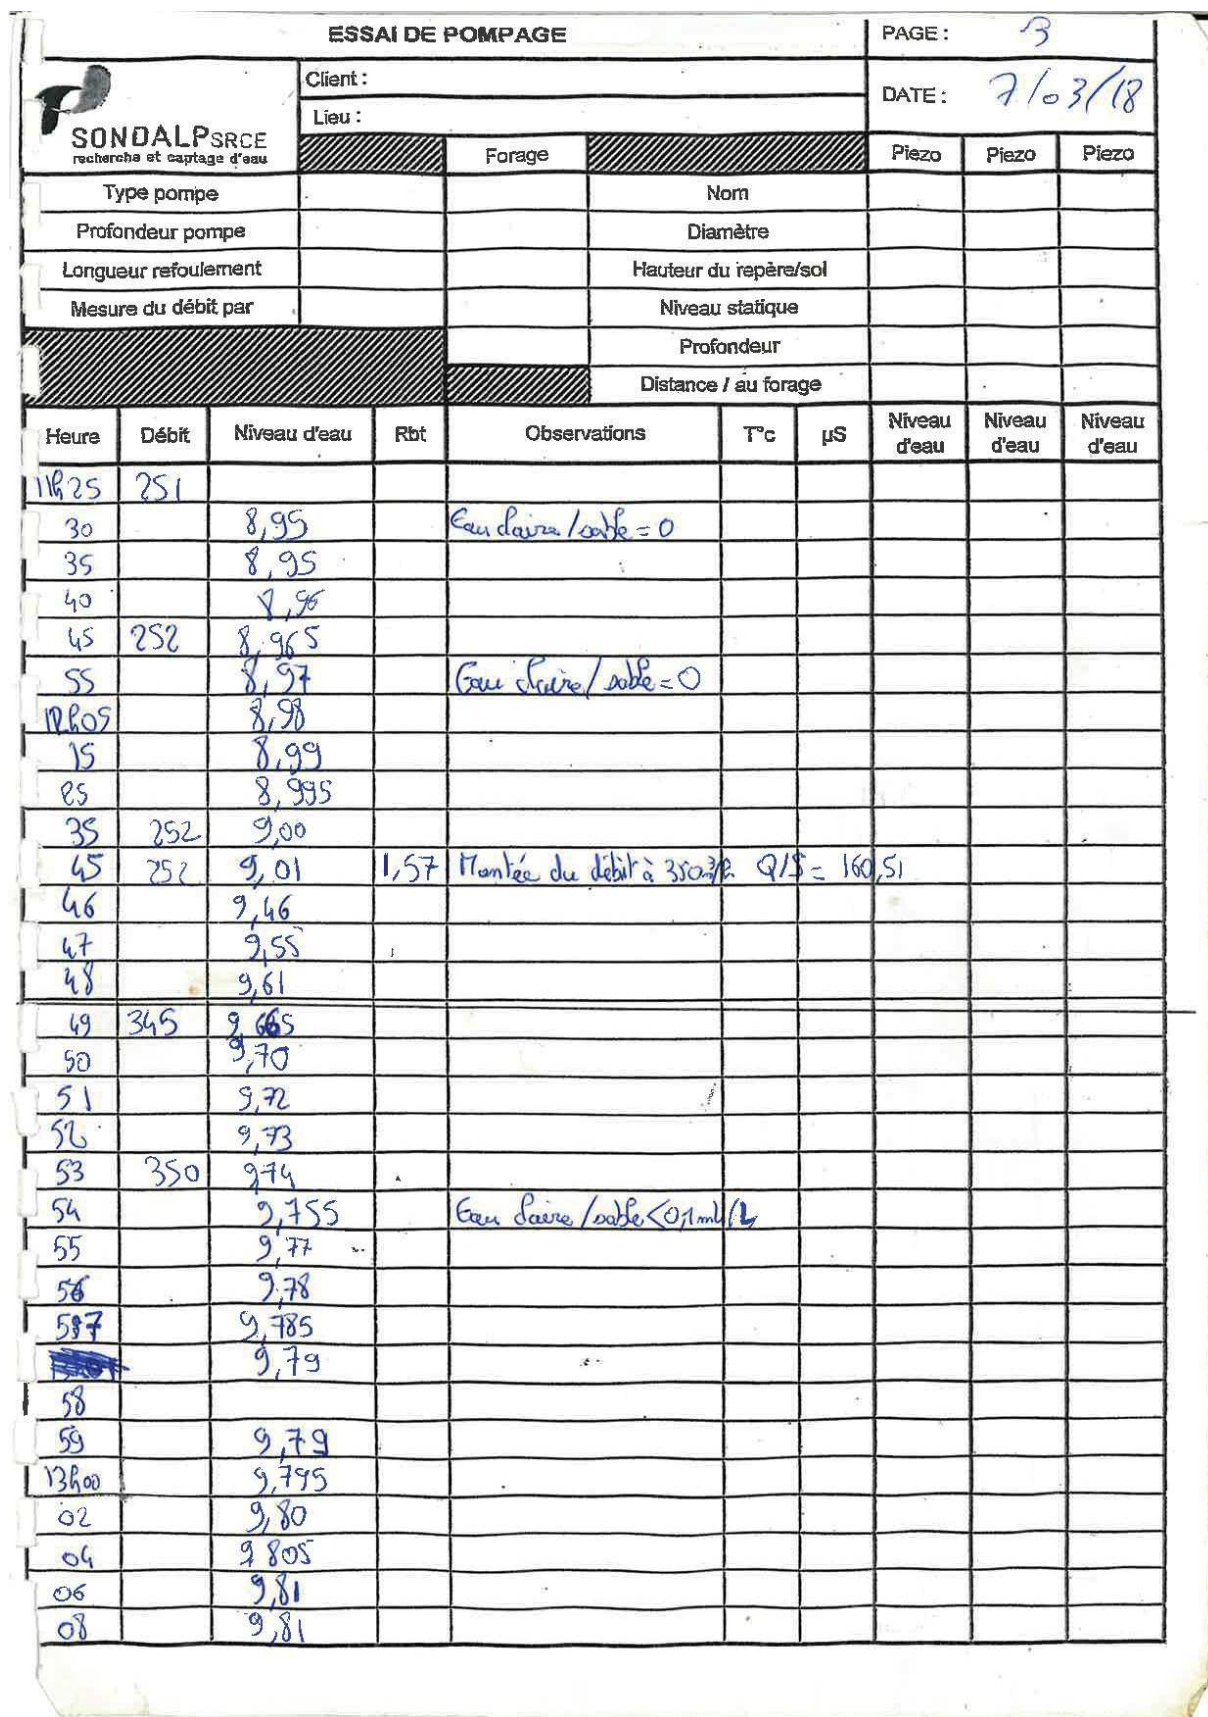 ESSAI DE POMPAGE PAGE : 3
Client :
DATE : 7/03/18
Lieu :
SONDALP SRCE
recherche et captage d'eau
Forage Piezo Piezo Piezo
Type pompe Nom
Profondeur pompe Diamètre
Longueur refoulement Hauteur du repère/sol
Mesure du débit par Niveau statique
Profondeur
Distance / au forage
Heure Débit Niveau d'eau Rbt Observations T°c µS Niveau d'eau Niveau d'eau Niveau d'eau
11h25 251
30 8,95 Eau claire / sable = 0
35 8,95
40 8,96
45 252 8,965
55 8,97 Eau claire / sable = 0
12h05 8,98
15 8,99
25 8,995
35 252 9,00
45 252 9,01 1,57 Montée du débit à 350m3/h Q/S = 160,51
46 9,46
47 9,55
48 9,61
49 345 9,665
50 9,70
51 9,72
52 9,73
53 350 9,74
54 9,755 Eau claire / sable <0,1ml/L
55 9,77
56 9,78
57 9,785
9,79
58
59 9,79
13h00 9,795
02 9,80
04 9 805
06 9,81
08 9,81